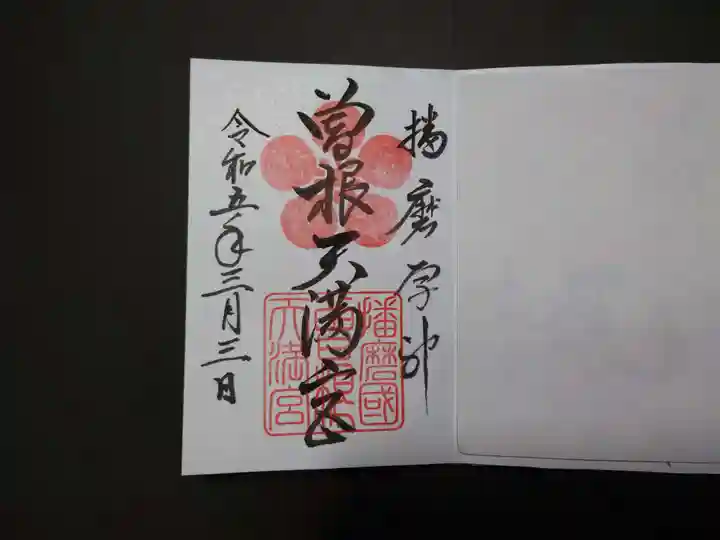 播磨学神
曽根天満宮
令和五年三月三日
播磨國
曽根
天満宮